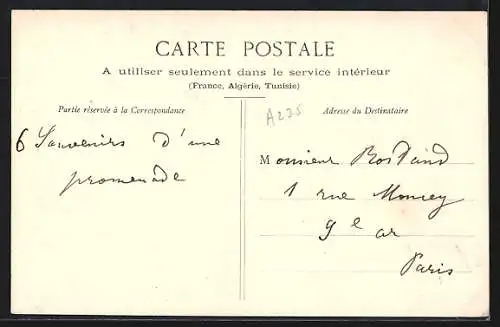 CARTE POSTALE
A utiliser seulement dans le service intérieur
(France, Algérie, Tunisie)
Partie réservée à la Correspondance
Adresse du Destinataire
A225
6 Souvenirs d'une
promenade
Monsieur Rostand
1 rue Moncey
9e ar
Paris